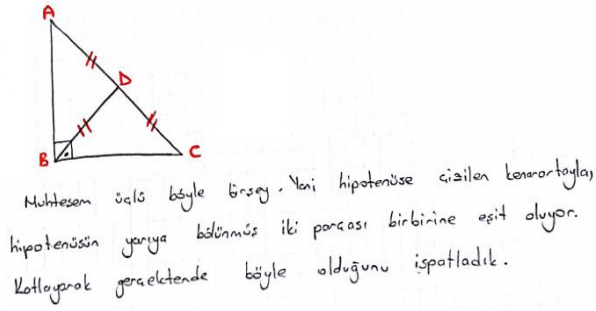 A
D
B
C
Muhteşem üçlü böyle birşey. Yani hipotenüse çizilen kenarortayla,
hipotenüsün yarıya bölünmüş iki parçası birbirine eşit oluyor.
Katlayarak gerçektende böyle olduğunu ispatladık.